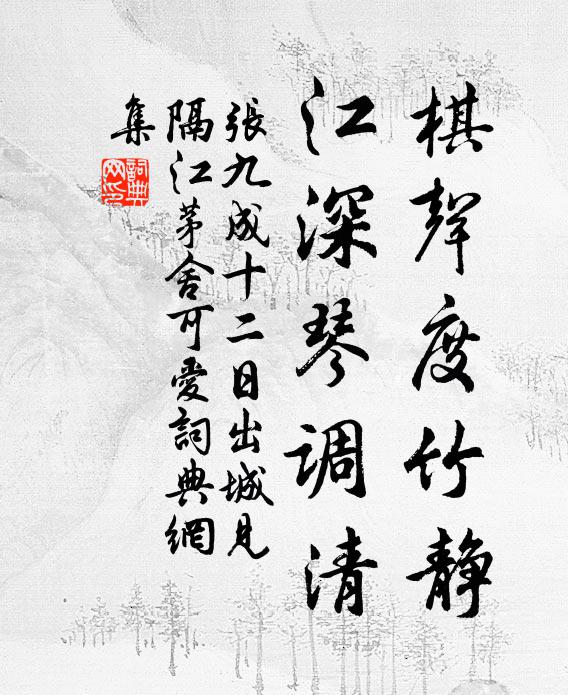 棋聲度竹静
江深琴调清
張九成十二日出城見
隔江茅舍可愛詞典網
集
詞典网印